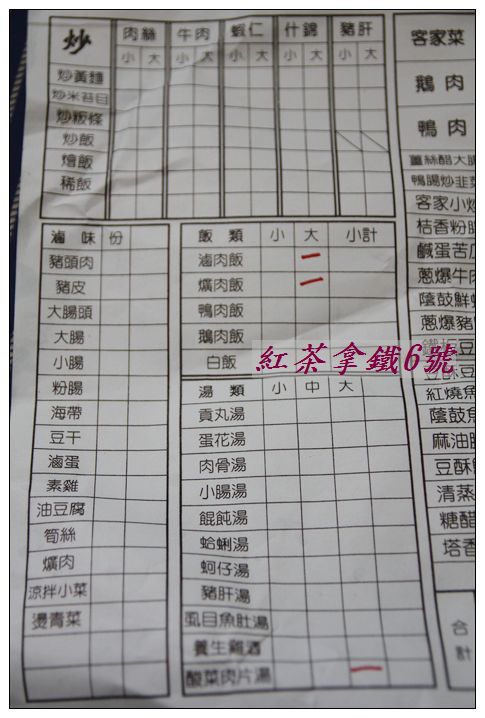 炒 肉絲 牛肉 蝦仁 什錦 豬肝
小 大 小 大 小 大 小 大 小 大
炒黃麵
炒米苔目
炒粄條
炒飯
燴飯
稀飯
滷味 份
豬頭肉
豬皮
大腸頭
大腸
小腸
粉腸
海帶
豆干
滷蛋
素雞
油豆腐
筍絲
爌肉
涼拌小菜
燙青菜
飯類 小 大 小計
滷肉飯 一
爌肉飯 一
鴨肉飯
鵝肉飯
白飯
紅茶拿鐵6號
湯類 小 中 大
貢丸湯
蛋花湯
肉骨湯
小腸湯
餛飩湯
蛤蜊湯
蚵仔湯
豬肝湯
虱目魚肚湯
養生雞酒
酸菜肉片湯 一
客家菜
鵝肉
鴨肉
薑絲醋大腸
鴨腸炒韭菜
客家小炒
桔香粉腸
鹹蛋苦瓜
蔥爆牛肉
蔭鼓鮮
蔥爆豬
鐵板豆
豆酥豆
紅燒魚
蔭鼓魚
麻油
豆酥
清蒸
糖醋
塔香
合計